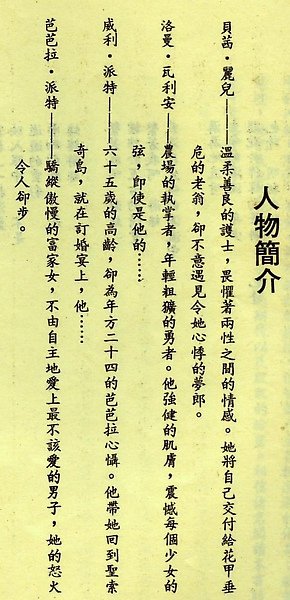 人物簡介
貝茜‧麗兒——溫柔善良的護士，畏懼著兩性之間的情感。她將自己交付給花甲垂
危的老翁，卻不意遇見令她心悸的夢郎。
洛曼‧瓦利安——農場的執掌者，年輕粗獷的勇者。他強健的肌膚，震憾每個少女的
弦，即使是他的……
威利‧派特——六十五歲的高齡，卻為年方二十四的芭芭拉心懾。他帶她回到聖索
奇島，就在訂婚宴上，他……
芭芭拉‧派特——驕縱傲慢的富家女，不由自主地愛上最不該愛的男子，她的怒火
令人卻步。